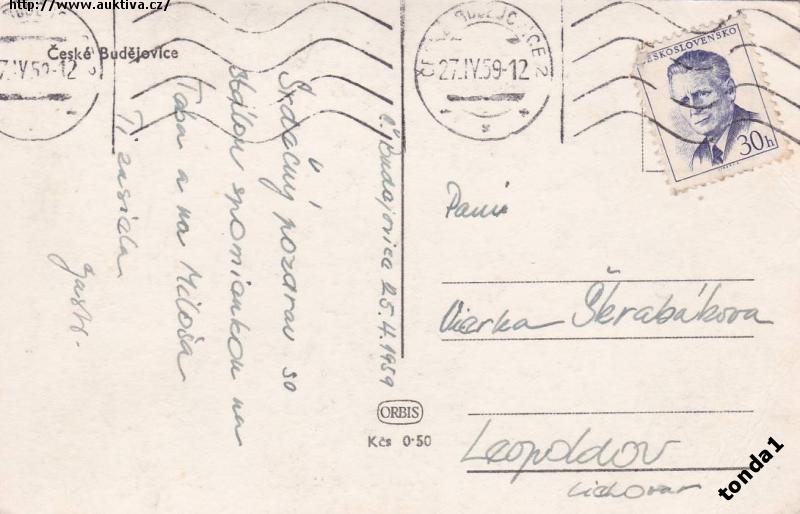 http://www.auktiva.cz/
České Budějovice
27.IV.59-12
27.IV.59-12
2
ČESKOSLOVENSKO
30h
Č. Budejovice 25.4.1959
Srdečný pozdrav so
stálou spomienkou na
Teba a na Miloša
Ti zasiela
Pani
Vierka Škrabáková
Leopoldov
Liehovar
ORBIS
Kčs 0·50
tonda1